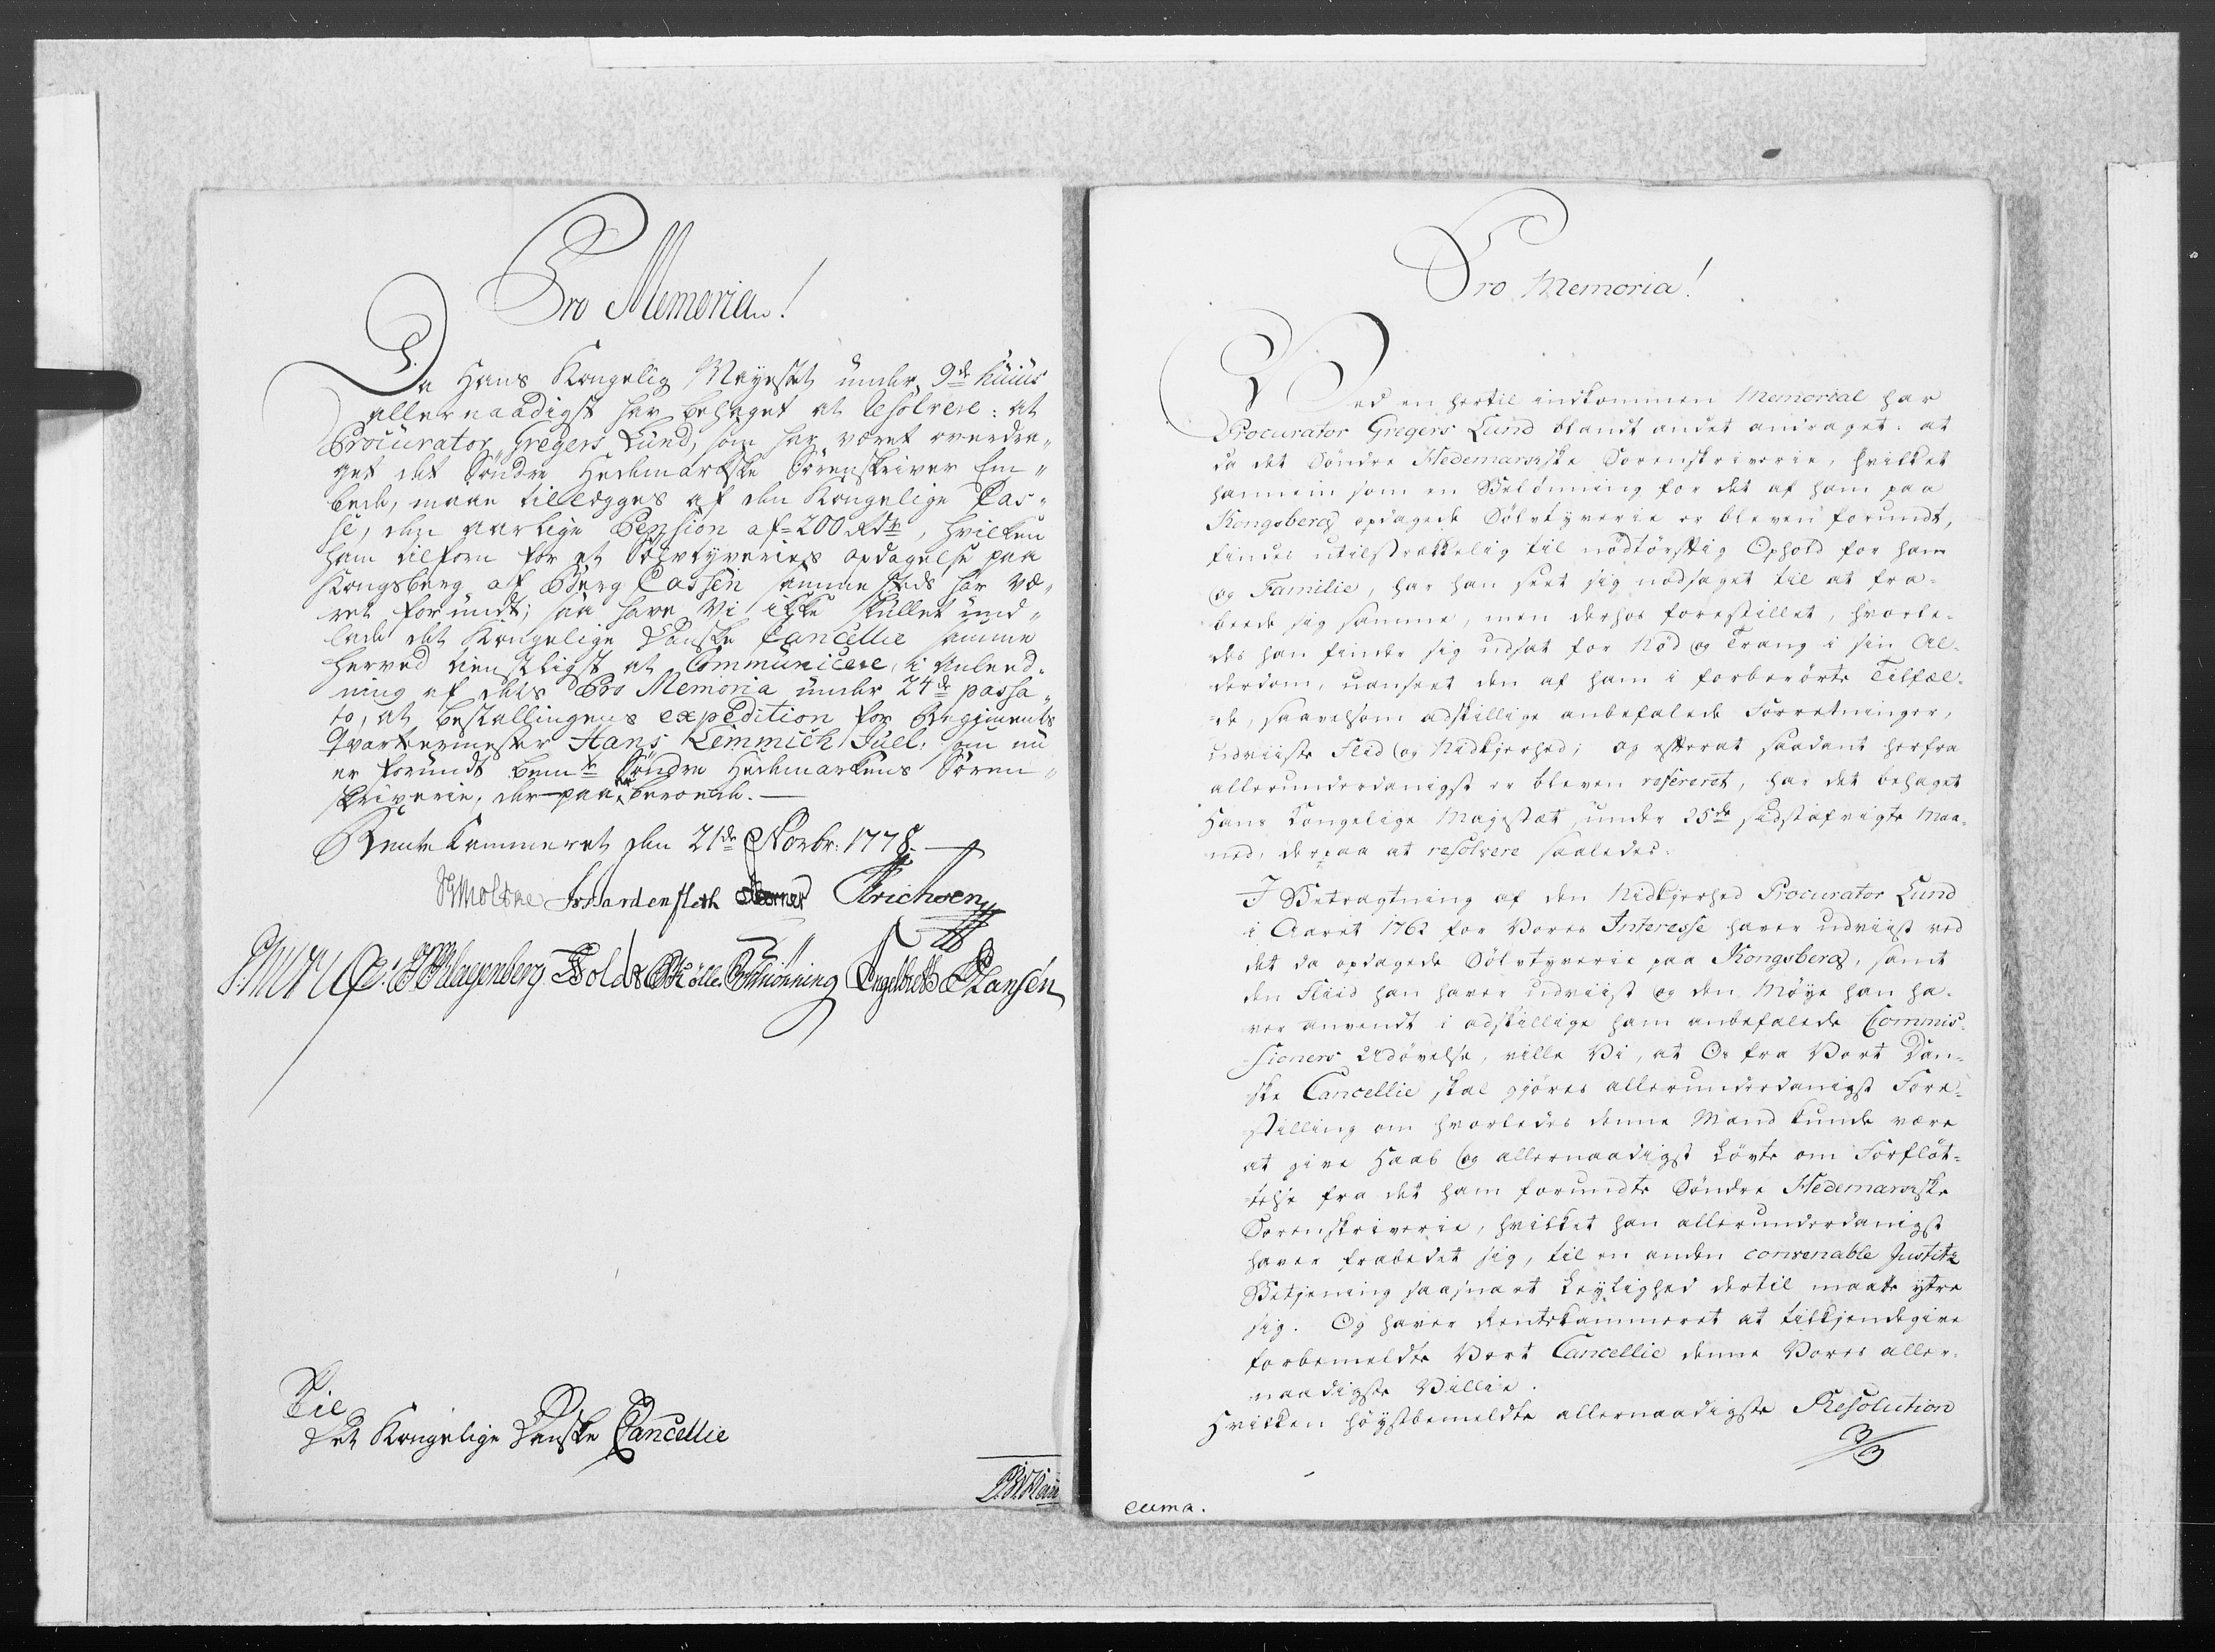 Pro Memoria!
Da Hans Kongelig Mayestet under 9de huius
allernaadigst har behaget at resolvere: at
Procurator Gregers Lund, som har været overdra„
get det Søndre Hedemarkske Sorenskriver Em„
bede, maae tillegges af den Kongelige Cas„
se, den aarlige Pension af 200 Rdr, hvilken
ham tilforn for et Sølvtyveries opdagelse paa
Kongsberg af Berg Cassen sammesteds har væ„
ret forundt; saa have Vi ikke skullet und„
lade det Kongelige Danske Cancellie samme
herved tienstligst at Communicere, i Anled„
ning af dets Pro Memoria under 24de passa„
to, at bestallingens expedition for Regiments
Qvarteermester Hans Lemmich Juel, som nu
er forundt bemte Søndre Hedemarkens Soren„
skriverie, derpaa er beroende.
Rente Kammeret den 21de Novbr: 1778.
SMoltke Hardenfleth Berner Erichsen
Müller Holmsted Hansen
Til
Det Kongelige Danske Cancellie
Pro Memoria!
Ved en hertil indkommen Memorial har
Procurator Gregers Lund blandt andet andraget: at
da det Søndre Hedemarkiske Sorenskriverie, hvilket
hannem som en Belønning for det af ham paa
Kongsberg opdagede Sølvtyverie er bleven forundt,
findes utilstrækkelig til nødtørftig Ophold for ham
og Familie, har han seet sig nødsaget til at fra-
beede sig samme, men derhos forestillet, hvorle-
des han finder sig udsat for Nød og Trang i sin Al-
derdom, uanseet den af ham i forberørte Tilfæl-
de, saavelsom adskillige anbefalede Forretninger,
udviiste Fliid og Nidkjerhed; og efterat saadant herfra
allerunderdanigst er bleven refereret, har det behaget
Hans Kongelige Majestæt, under 25de sidstafvigte Maa-
ned, derpaa at resolvere saaledes:
I Betragtning af den Nidkjerhed Procurator Lund
i Aaret 1762 for Vores Interesse haver udviist ved
det da opdagede Sølvtyverie paa Kongsberg, samt
den Fliid han haver udviist og den Møye han ha-
ver anvendt i adskillige ham anbefalede Commis-
sioners Udøvelse, ville Vi, at Os fra Vort Dan-
ske Cancellie skal gjøres allerunderdanigst Fore-
stilling om hvorledes denne Mand kunde være
at give Haab og allernaadigst Løvte om Forflöt-
telse fra det ham forundte Søndre Hedemarkiske
Sorenskriverie, hvilket han allerunderdanigst
haver frabedet sig, til en anden convenable Justitz
Betjening saasnart Leylighed dertil maatte yttre
sig. Og haver Rentekammeret at tilkjendegive
forbemeldte Vort Cancellie denne Vores aller-
naadigste Villie.
Hvilken høystbemeldte allernaadigste Resolution